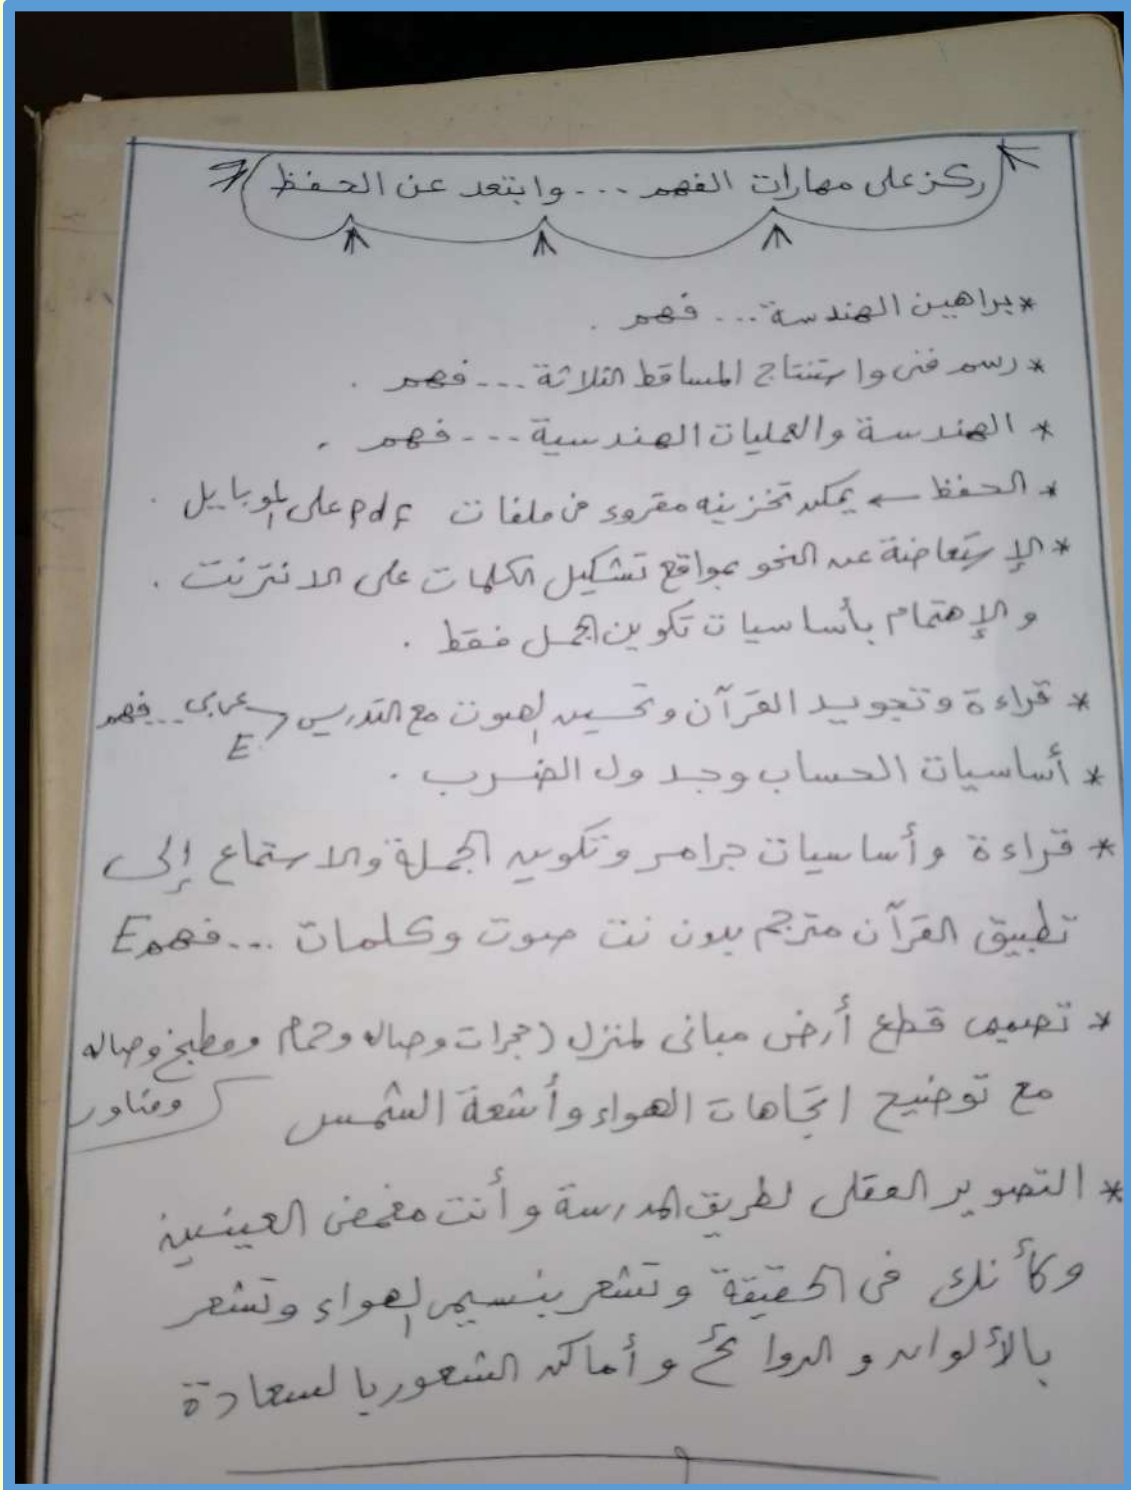 ركز على مهارات الفهم ... وابتعد عن الحفظ
* براهين الهندسة ... فهم .
* رسم فنى واستنتاج المساقط الثلاثة ... فهم .
* الهندسة والعمليات الهندسية ... فهم .
* الحفظ ← يمكن تخزينه مقروء فى ملفات pdf على الموبايل .
* الإستعاضة عن النحو بمواقع تشكيل الكلمات على الانترنت .
والإهتمام بأساسيات تكوين الجمل فقط .
* قراءة وتجويد القرآن وتحسين الصوت مع التدريس عربى ... فهم
E
* أساسيات الحساب وجدول الضرب .
* قراءة وأساسيات جرامر وتكوين الجملة والاستماع إلى
تطبيق القرآن مترجم بدون نت صوت وكلمات ... فهم E
* تصميم قطع أرض مبانى لمنزل (حجرات وصاله وحمام ومطبخ وصاله
ومناور
مع توضيح اتجاهات الهواء وأشعة الشمس
* التصوير العقلى لطريق المدرسة وأنت مغمض العينين
وكأنك فى الحقيقة وتشعر بنسيم الهواء وتشعر
بالألوان والروائح وأماكن الشعور بالسعادة